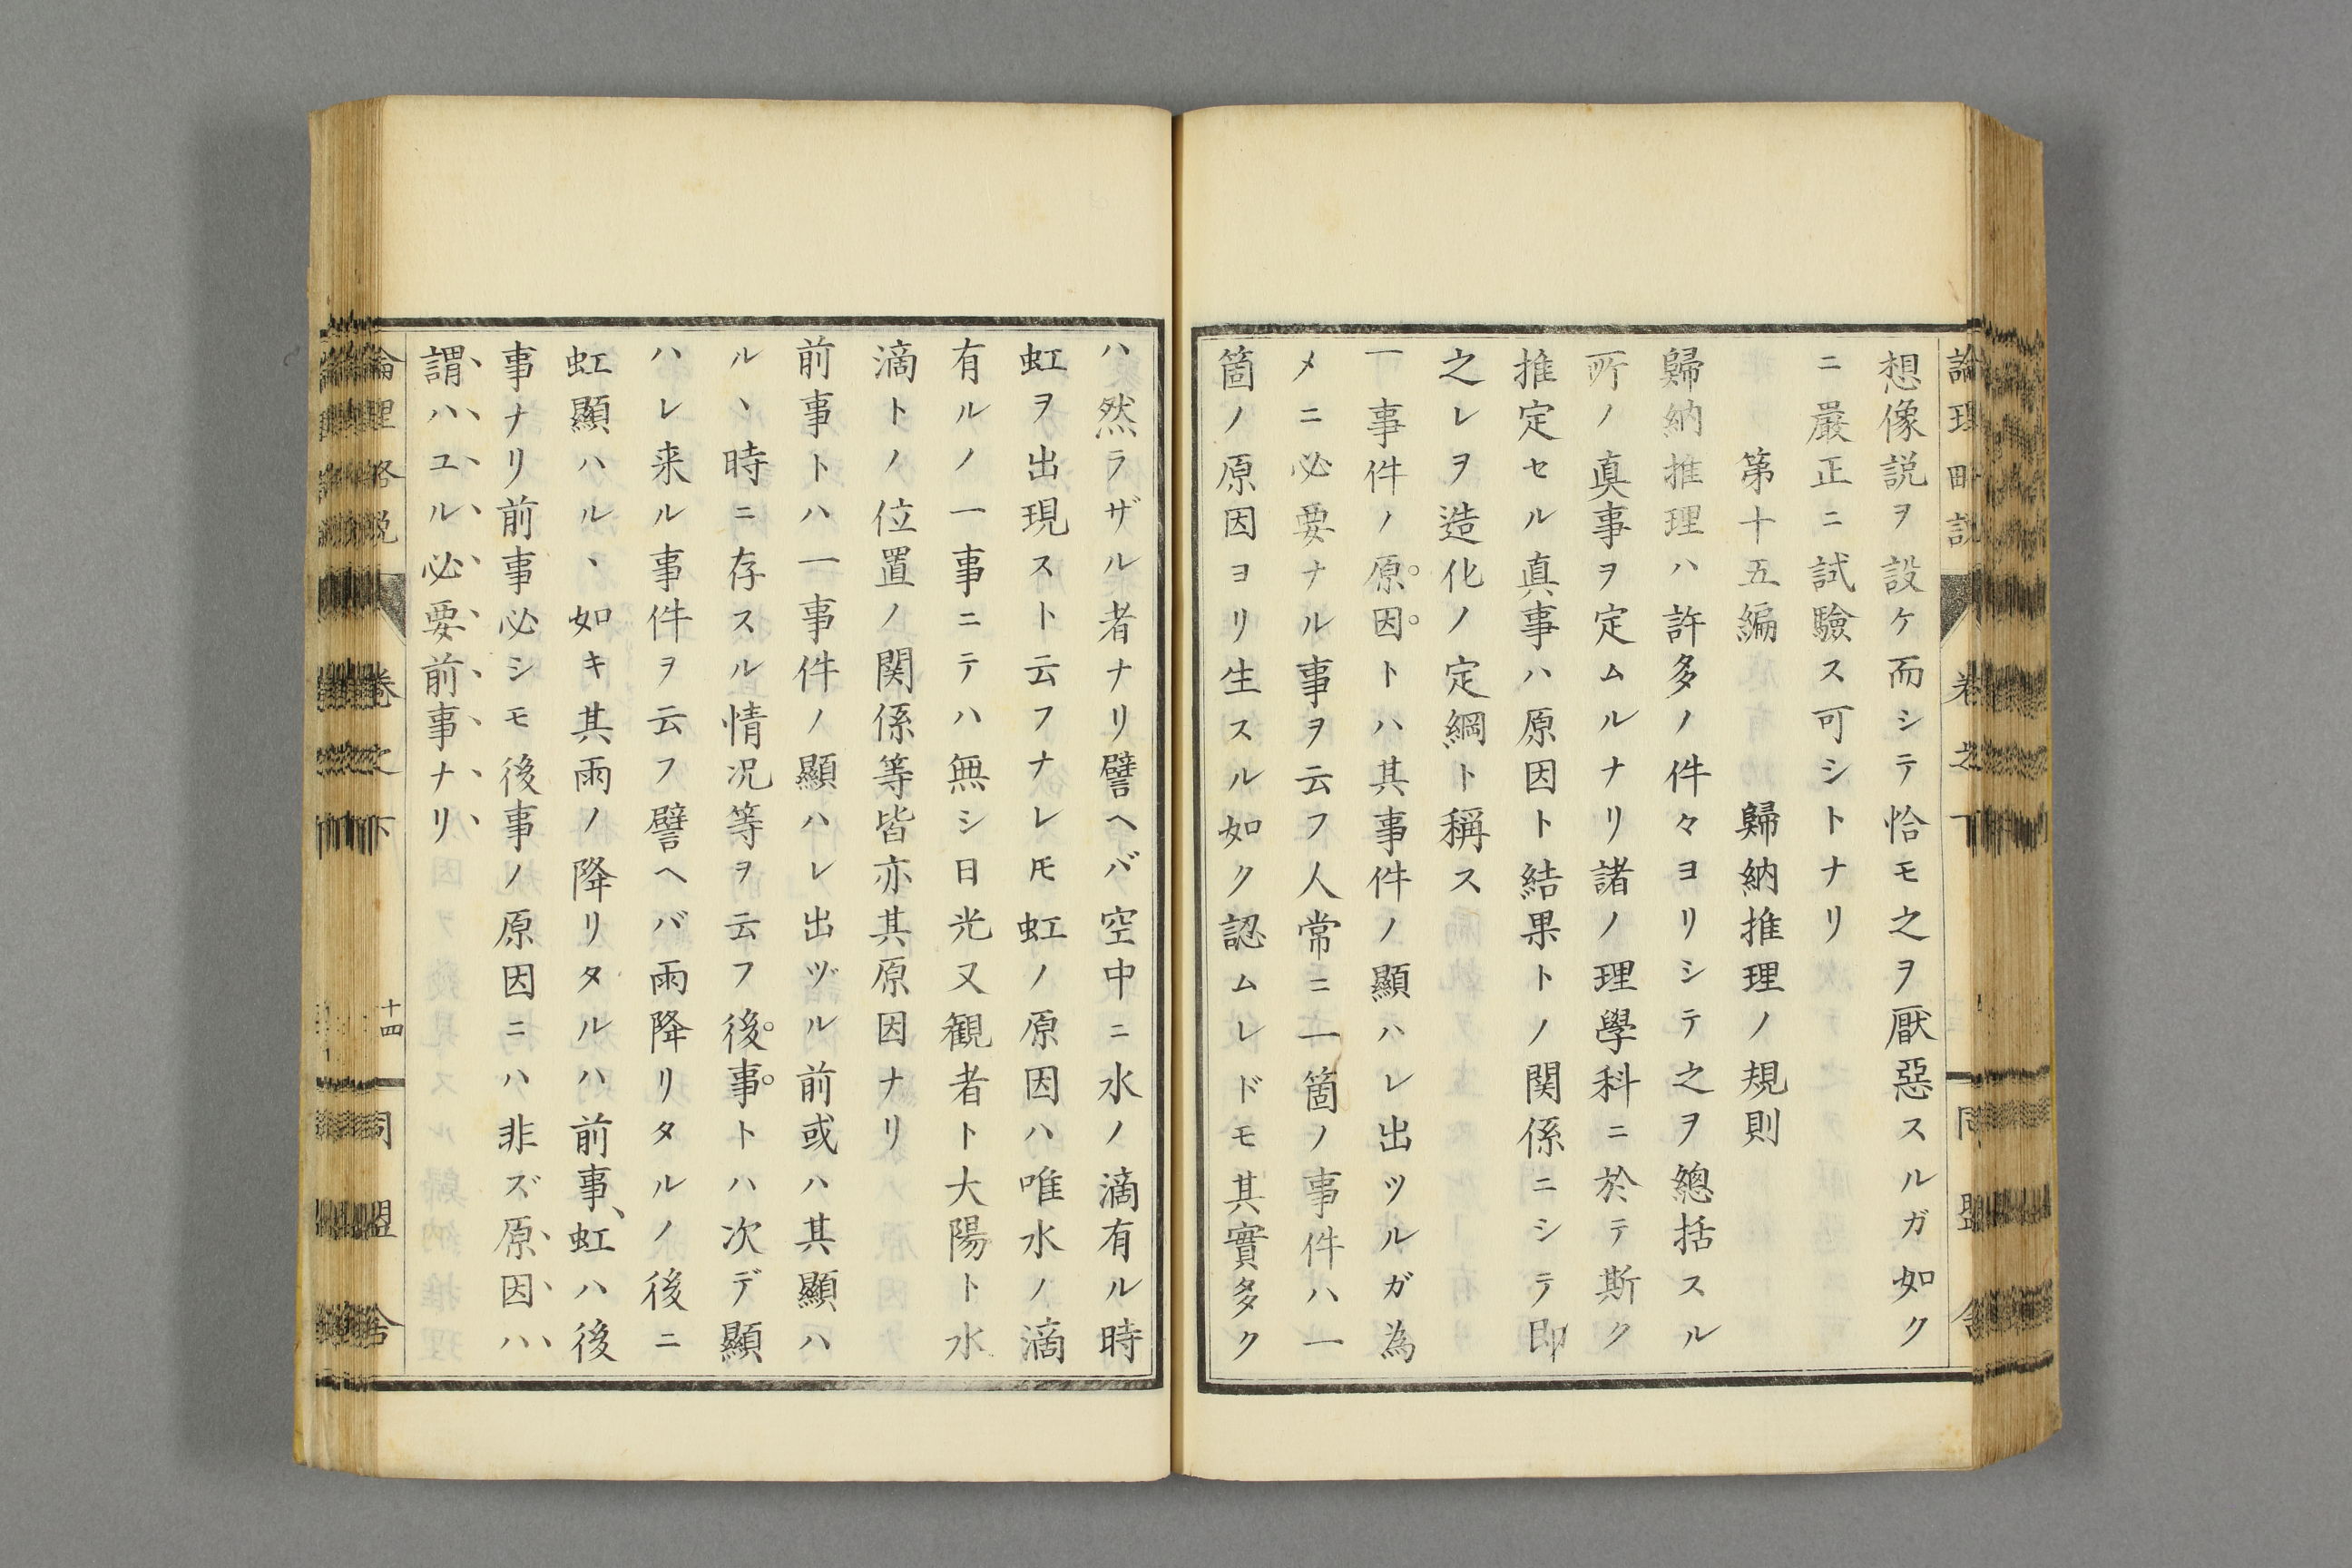 論理畧説 卷之下 同盟舎
想像説ヲ設ケ而シテ恰モ之ヲ厭惡スルガ如ク
ニ嚴正ニ試驗ス可シトナリ
第十五編 歸納推理ノ規則
歸納推理ハ許多ノ件々ヨリシテ之ヲ總括スル
所ノ眞事ヲ定ムルナリ諸ノ理學科ニ於テ斯ク
推定セル真事ハ原因ト結果トノ関係ニシテ即
之レヲ造化ノ定綱ト稱ス
一事件ノ原因トハ其事件ノ顯ハレ出ツルガ為
メニ必要ナル事ヲ云フ人常ニ一箇ノ事件ハ一
箇ノ原因ヨリ生スル如ク認ムレドモ其實多ク
ハ然ラザル者ナリ譬ヘバ空中ニ水ノ滴有ル時
虹ヲ出現スト云フナレ𪜈虹ノ原因ハ唯水ノ滴
有ルノ一事ニテハ無シ日光又観者ト大陽ト水
滴トノ位置ノ関係等皆亦其原因ナリ
前事トハ一事件ノ顯ハレ出ヅル前或ハ其顯ハ
ルヽ時ニ存スル情況等ヲ云フ後事トハ次デ顯
ハレ来ル事件ヲ云フ譬ヘバ雨降リタルノ後ニ
虹顯ハルヽ如キ其雨ノ降リタルハ前事、虹ハ後
事ナリ前事必シモ後事ノ原因ニハ非ズ原因ハ
謂ハユル必要前事ナリ
論理畧説 卷之下 十四 同盟舎